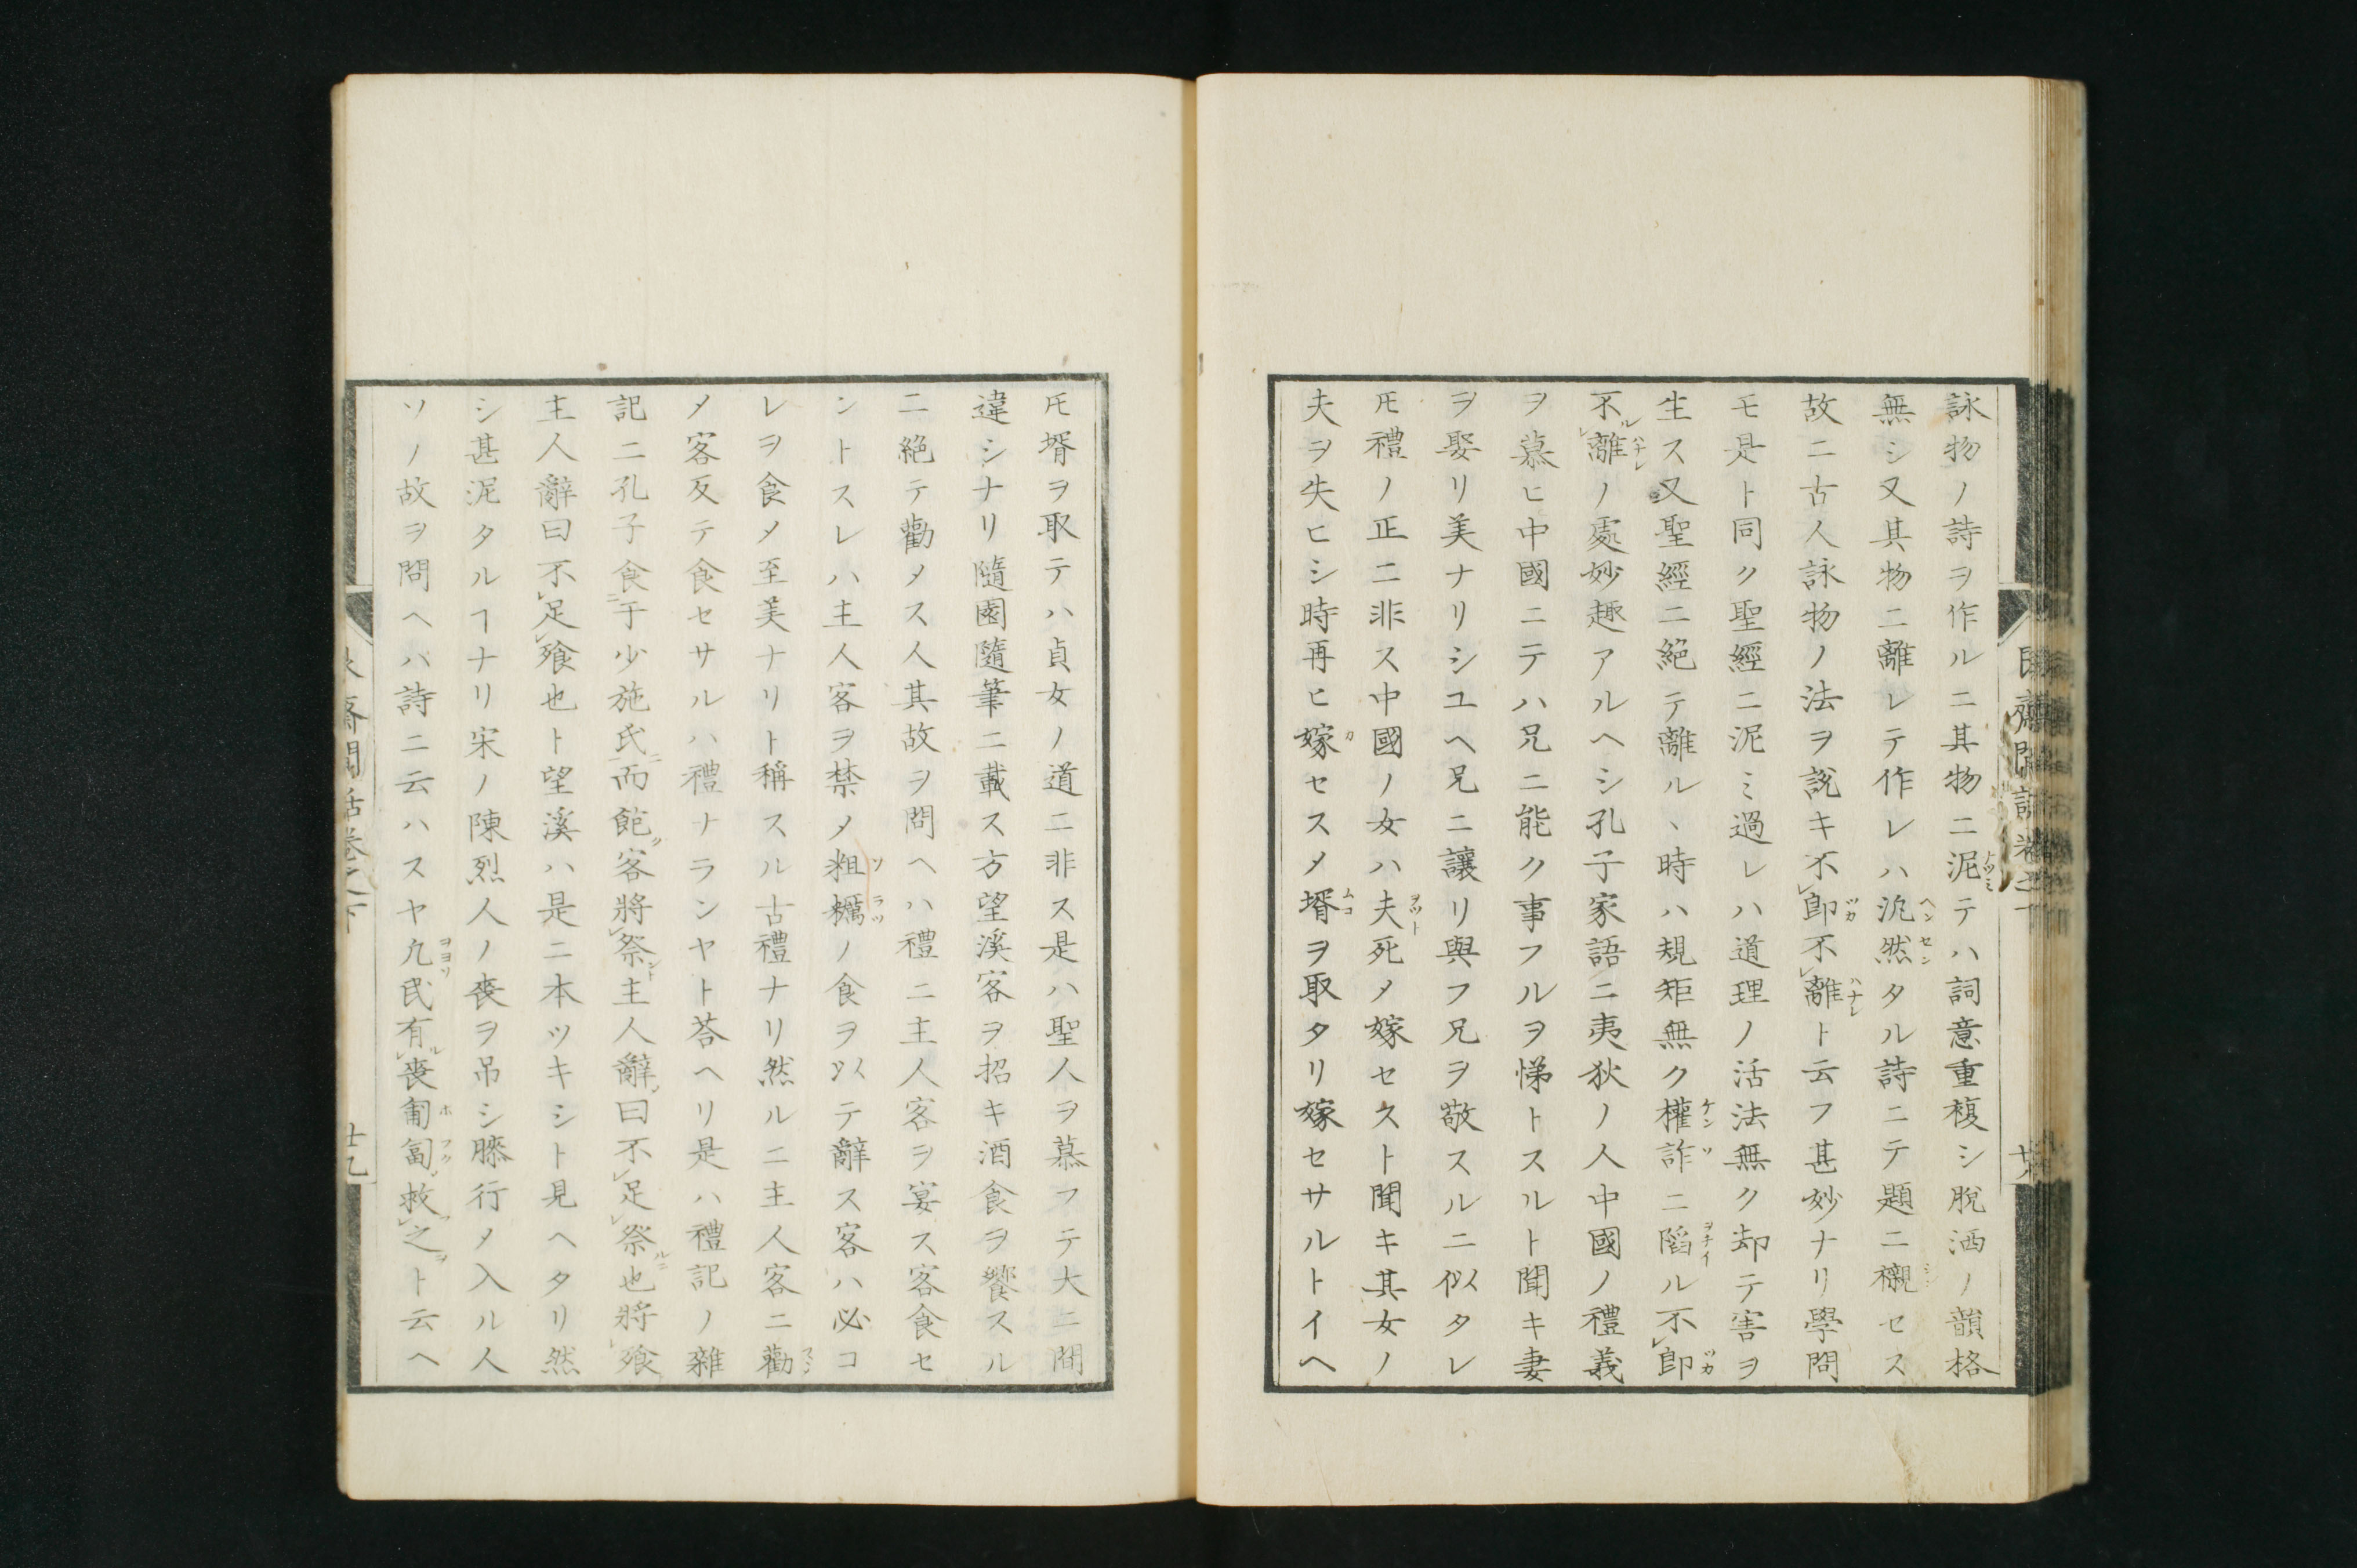 詠物ノ詩ヲ作ルニ其物ニ泥テハ詞意重複シ脱洒ノ韻格
無シ又其物ニ離レテ作レハ汎然タル詩ニテ題ニ襯セス
故ニ古人詠物ノ法ヲ説キ不即不離ト云フ甚妙ナリ學問
モ是ト同ク聖經ニ泥ミ過レハ道理ノ活法無ク却テ害ヲ
生ス又聖經ニ絶テ離ルヽ時ハ規矩無ク權詐ニ陷ル不即
不離ノ處妙趣アルヘシ孔子家語ニ夷狄ノ人中國ノ禮義
ヲ慕ヒ中國ニテハ兄ニ能ク事フルヲ悌トスルト聞キ妻
ヲ娶リ美ナリシユヘ兄ニ讓リ與フ兄ヲ敬スルニ似タレ
𪜈禮ノ正ニ非ス中國ノ女ハ夫死メ嫁セスト聞キ其女ノ
夫ヲ失ヒシ時再ヒ嫁セスメ壻ヲ取タリ嫁セサルトイヘ
𪜈壻ヲ取テハ貞女ノ道ニ非ス是ハ聖人ヲ慕フテ大ニ間
違シナリ隨園隨筆ニ載ス方望溪客ヲ招キ酒食ヲ饗スル
ニ絶テ勸メス人其故ヲ問ヘハ禮ニ主人客ヲ宴ス客食セ
ントスレハ主人客ヲ禁メ粗糲ノ食ヲ以テ辭ス客ハ必コ
レヲ食メ至美ナリト稱スル古禮ナリ然ルニ主人客ニ勸
メ客反テ食セサルハ禮ナランヤト荅ヘリ是ハ禮記ノ雜
記ニ孔子食于少施氏而飽客將祭主人辭曰不足祭也將飱
主人辭曰不足飱也ト望溪ハ是ニ本ツキシト見ヘタリ然
シ甚泥タルヿナリ宋ノ陳烈人ノ喪ヲ吊シ膝行メ入ル人
ソノ故ヲ問ヘバ詩ニ云ハスヤ凡民有喪匍匐救之ト云ヘ